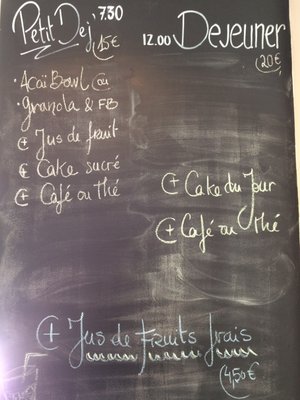 Petit Dej' 7.30
15€
• Açaï Bowl ou
• Granola & FB
⊕ Jus de fruit
⊕ Cake sucré
⊕ Café ou Thé
12.00 Dejeuner
20€
⊕ Cake du Jour
⊕ Café ou Thé
⊕ Jus de fruits frais
4,50€